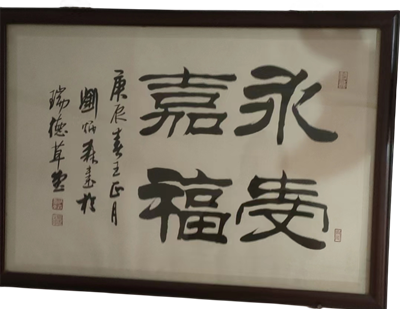 永受
嘉福
庚辰春王正月
劉炳森書於
瑞德草堂